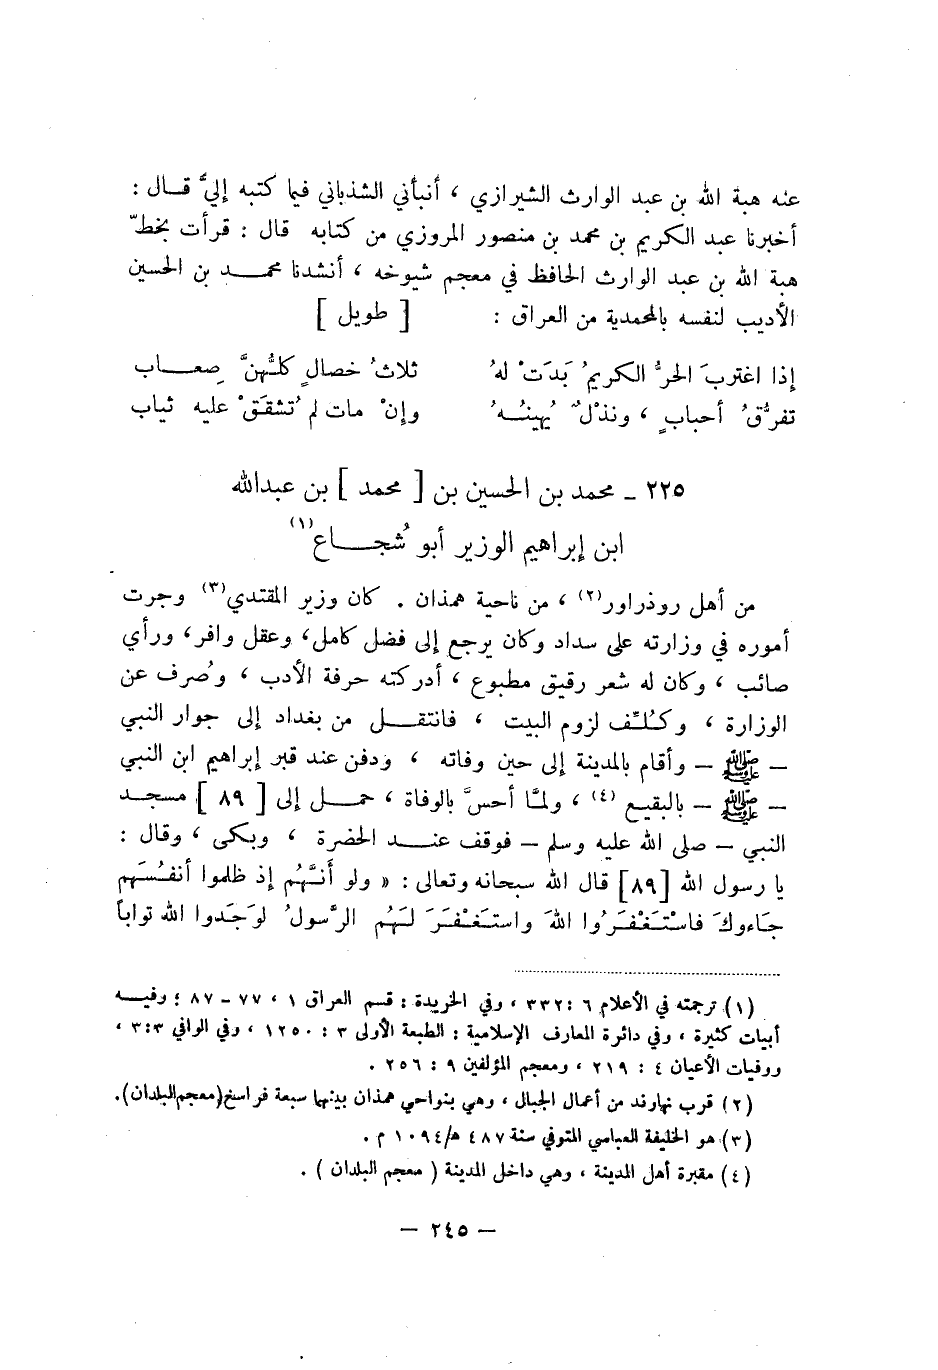 عنه هبة الله بن عبد الوارث الشيرازي ، أنبأني الشذباني فيما كتبه إليَّ قـال :
أخبرنا عبد الكريم بن محمد بن منصور المروزي من كتابه قال : قرأت بخطّ
هبة الله بن عبد الوارث الحافظ في معجم شيوخه ، أنشدنا محمـد بن الحسين
الأديب لنفسه بالمحمدية من العراق : [ طويل ]
إذا اغتربَ الحرُّ الكريمُ بَدَتْ لهُ ثلاثُ خصالٍ كلُّهنَّ صِعـاب
تفرُّقُ أحبابٍ ، ونذْلٌ يُهينُـهُ وإنْ مات لم تُشقَقْ عليه ثياب
٢٢٥ ـ محمد بن الحسين بن [ محمد ] بن عبدالله
ابن إبراهيم الوزير أبو شُجـاع(١)
من أهل روذراور(٢) ، من ناحية همذان . كان وزير المقتدي(٣) وجرت
أموره في وزارته على سداد وكان يرجع إلى فضل كامل، وعقل وافر، ورأي
صائب ، وكان له شعر رقيق مطبوع ، أدركته حرفة الأدب ، وصُرف عن
الوزارة ، وكُلِّف لزوم البيت ، فانتقـل من بغداد إلى جوار النبي
– ﷺ – وأقام بالمدينة إلى حين وفاته ، ودفن عند قبر إبراهيم ابن النبي
– ﷺ – بالبقيع (٤) ، ولمَّا أحسَّ بالوفاة ، حمـل إلى [ ٨٩ ] مسجـد
النبي – صلى الله عليه وسلم – فوقف عنـد الحضرة ، وبكى ، وقال :
يا رسول الله [٨٩] قال الله سبحانه وتعالى : « ولو أنَّهُم إذ ظلموا أنفُسَهم
جَاءوكَ فاسْتَغْفَرُوا اللهَ واستَغْفَرَ لَهُم الرَّسولُ لوَجَدوا الله تواباً
(١) ترجمته في الأعلام ٦ : ٣٣٢ ، وفي الخريدة : قسم العراق ١ ، ٧٧ – ٨٧ ؛ وفيـه
أبيات كثيرة ، وفي دائرة المعارف الإسلامية : الطبعة الأولى ٣ : ١٢٥٠ ، وفي الوافي ٣:٣ ،
ووفيات الأعيان ٤ : ٢١٩ ، ومعجم المؤلفين ٩ : ٢٥٦ .
(٢) قرب نهاوند من أعمال الجبال ، وهي بنواحي همذان بينها سبعة فراسخ(معجم البلدان).
(٣) هو الخليفة العباسي المتوفي سنة ٤٨٧ هـ/١٠٩٤ م .
(٤) مقبرة أهل المدينة ، وهي داخل المدينة ( معجم البلدان ) .
– ٢٤٥ –